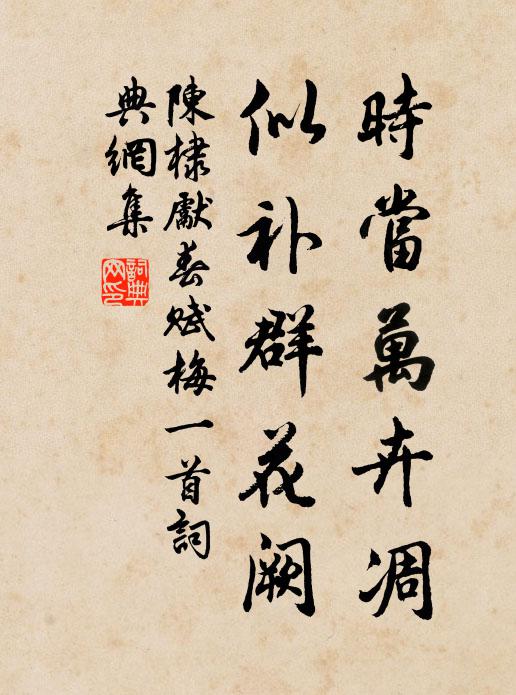 時當萬卉凋
似补群花阙
陳棣獻春賦梅一首詞
典網集
詞典網印